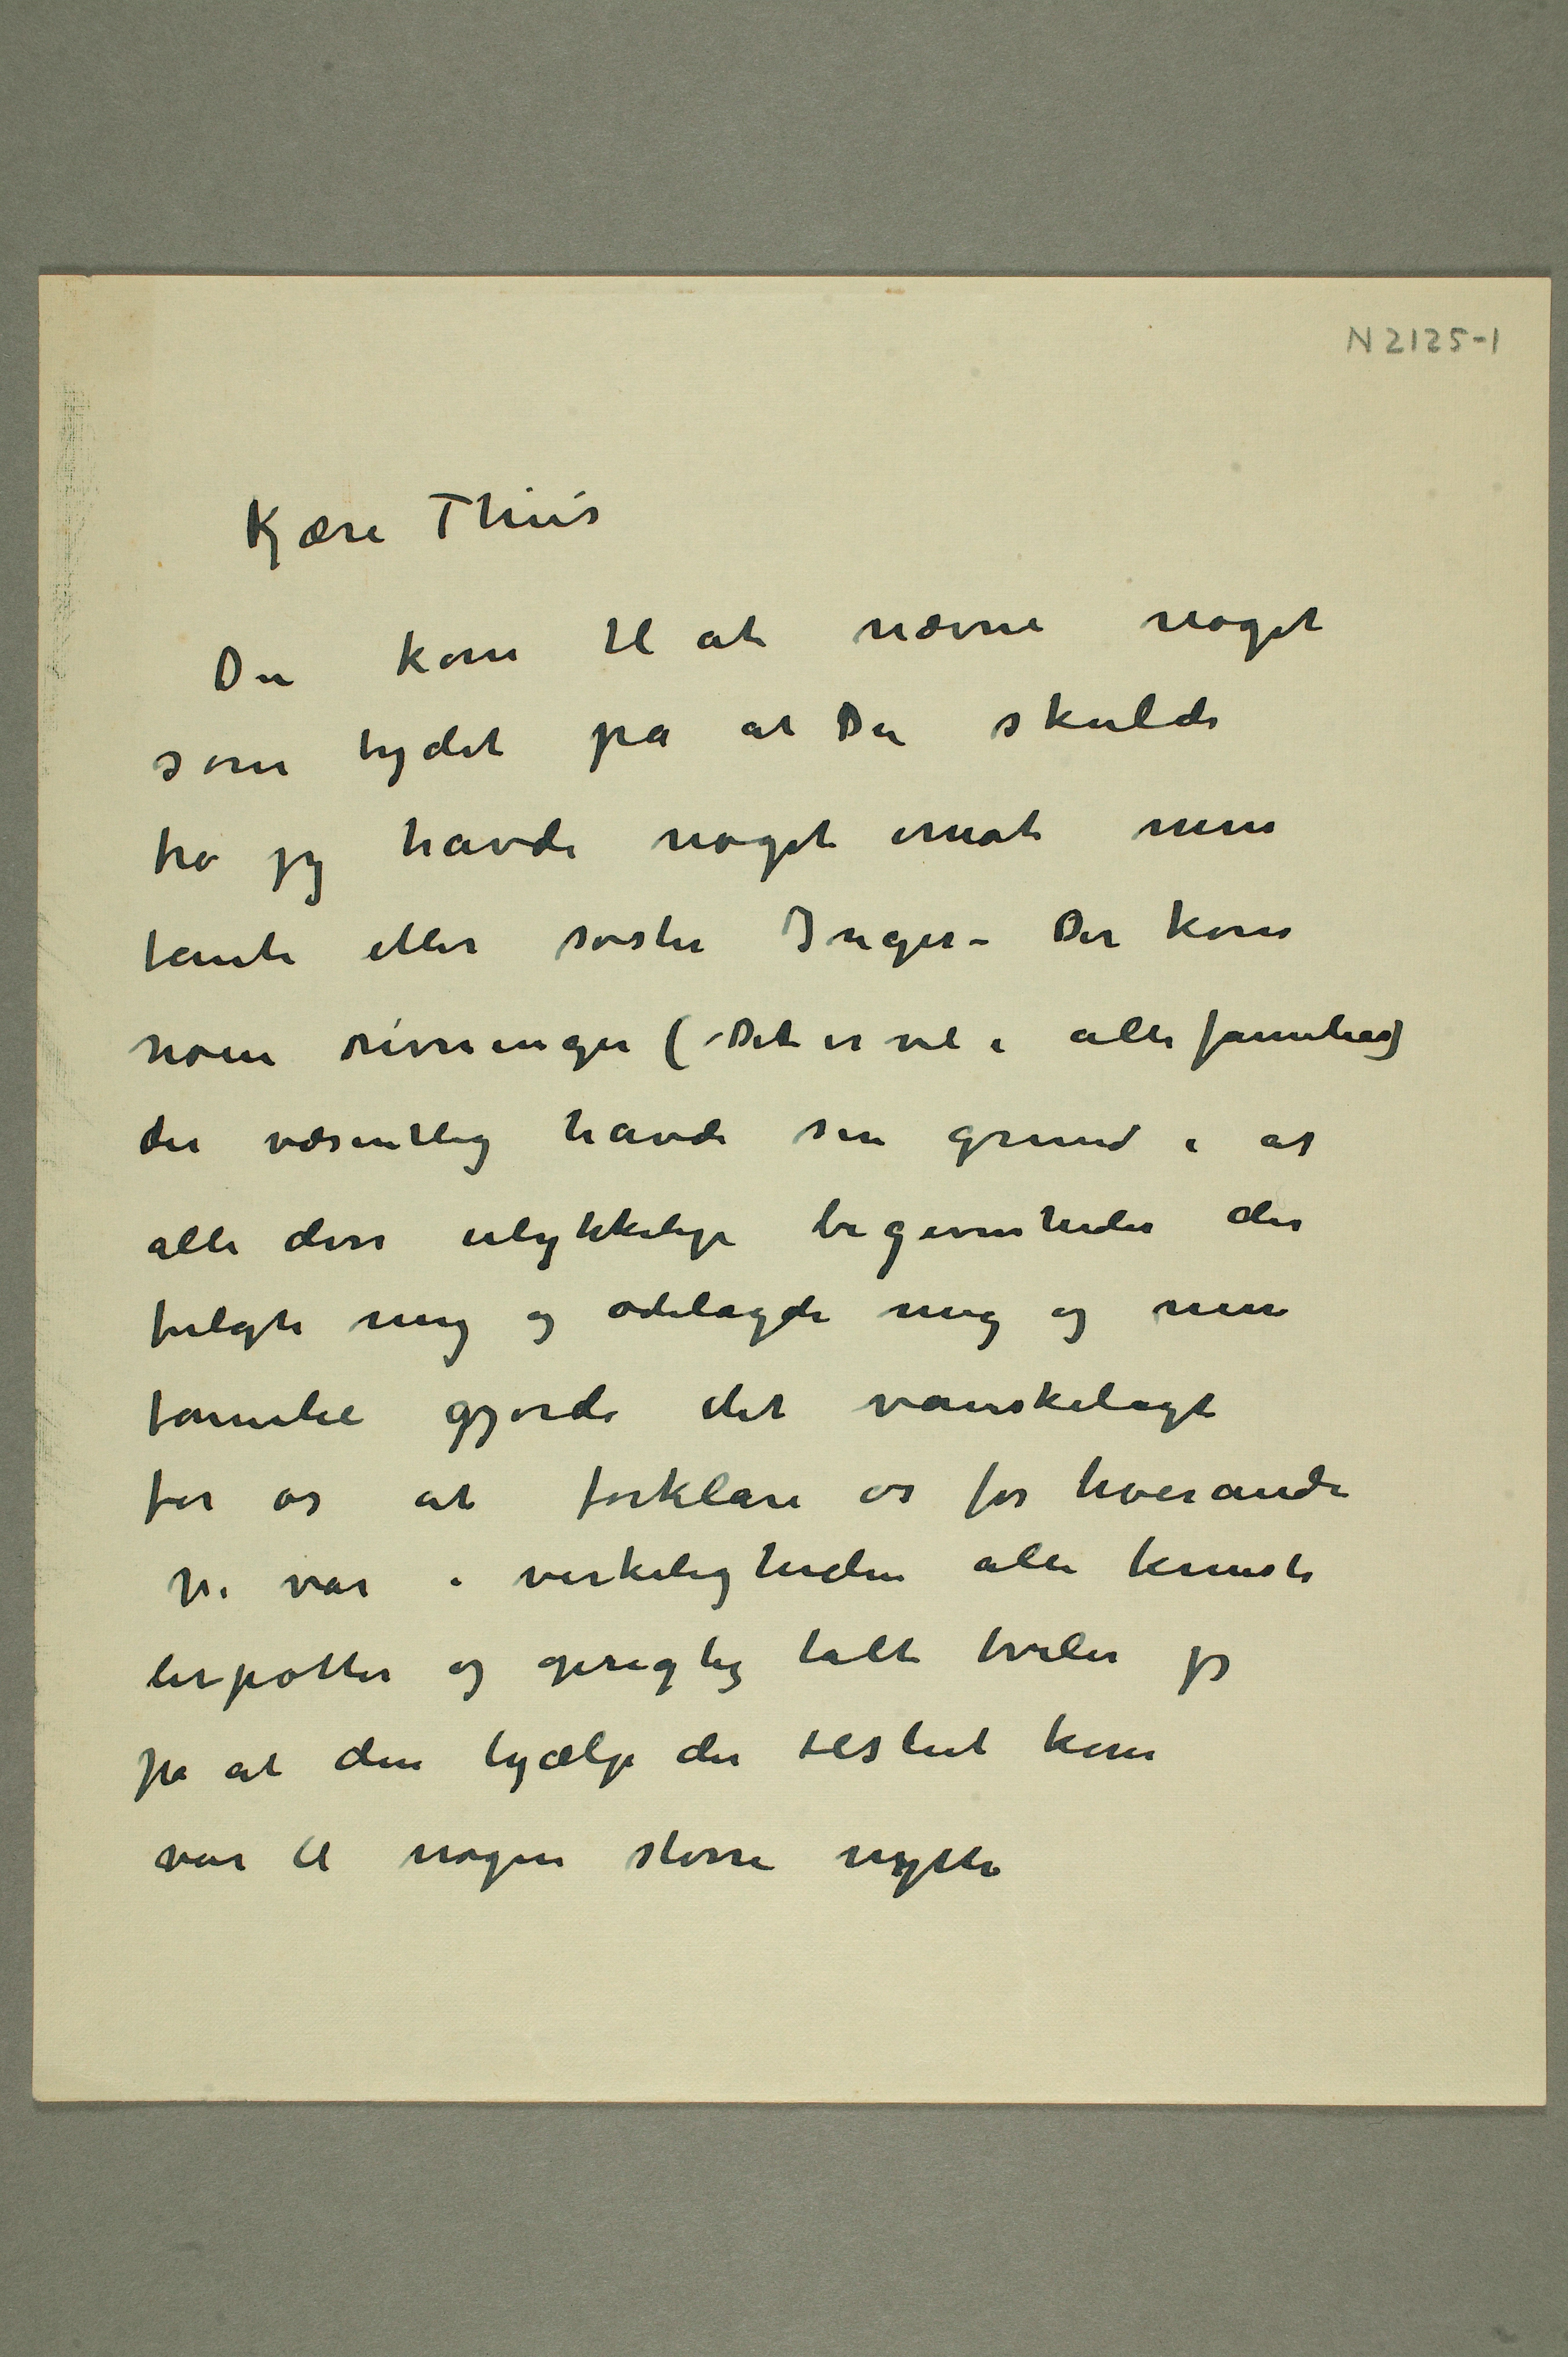 N 2125-1
Kjære Thiis
Du kom til at nævne noget
som tydet på at Du skulde
tro jeg havde noget imot min
tante eller søster Inger – Der kom
noen rivninger (– Det er vel i alle familier)
der væsentlig havde sin grund i at
alle disse ulykkelige begivenheder der
fulgte mig og ødelagde mig og min
familie gjorde det vanskeligt
for os at forklare os for hverandre
Vi var i virkeligheden alle knuste
lerpotter og oprigtig talt tviler jeg
på at den hjælp der tilslut kom
var til nogen større nytte